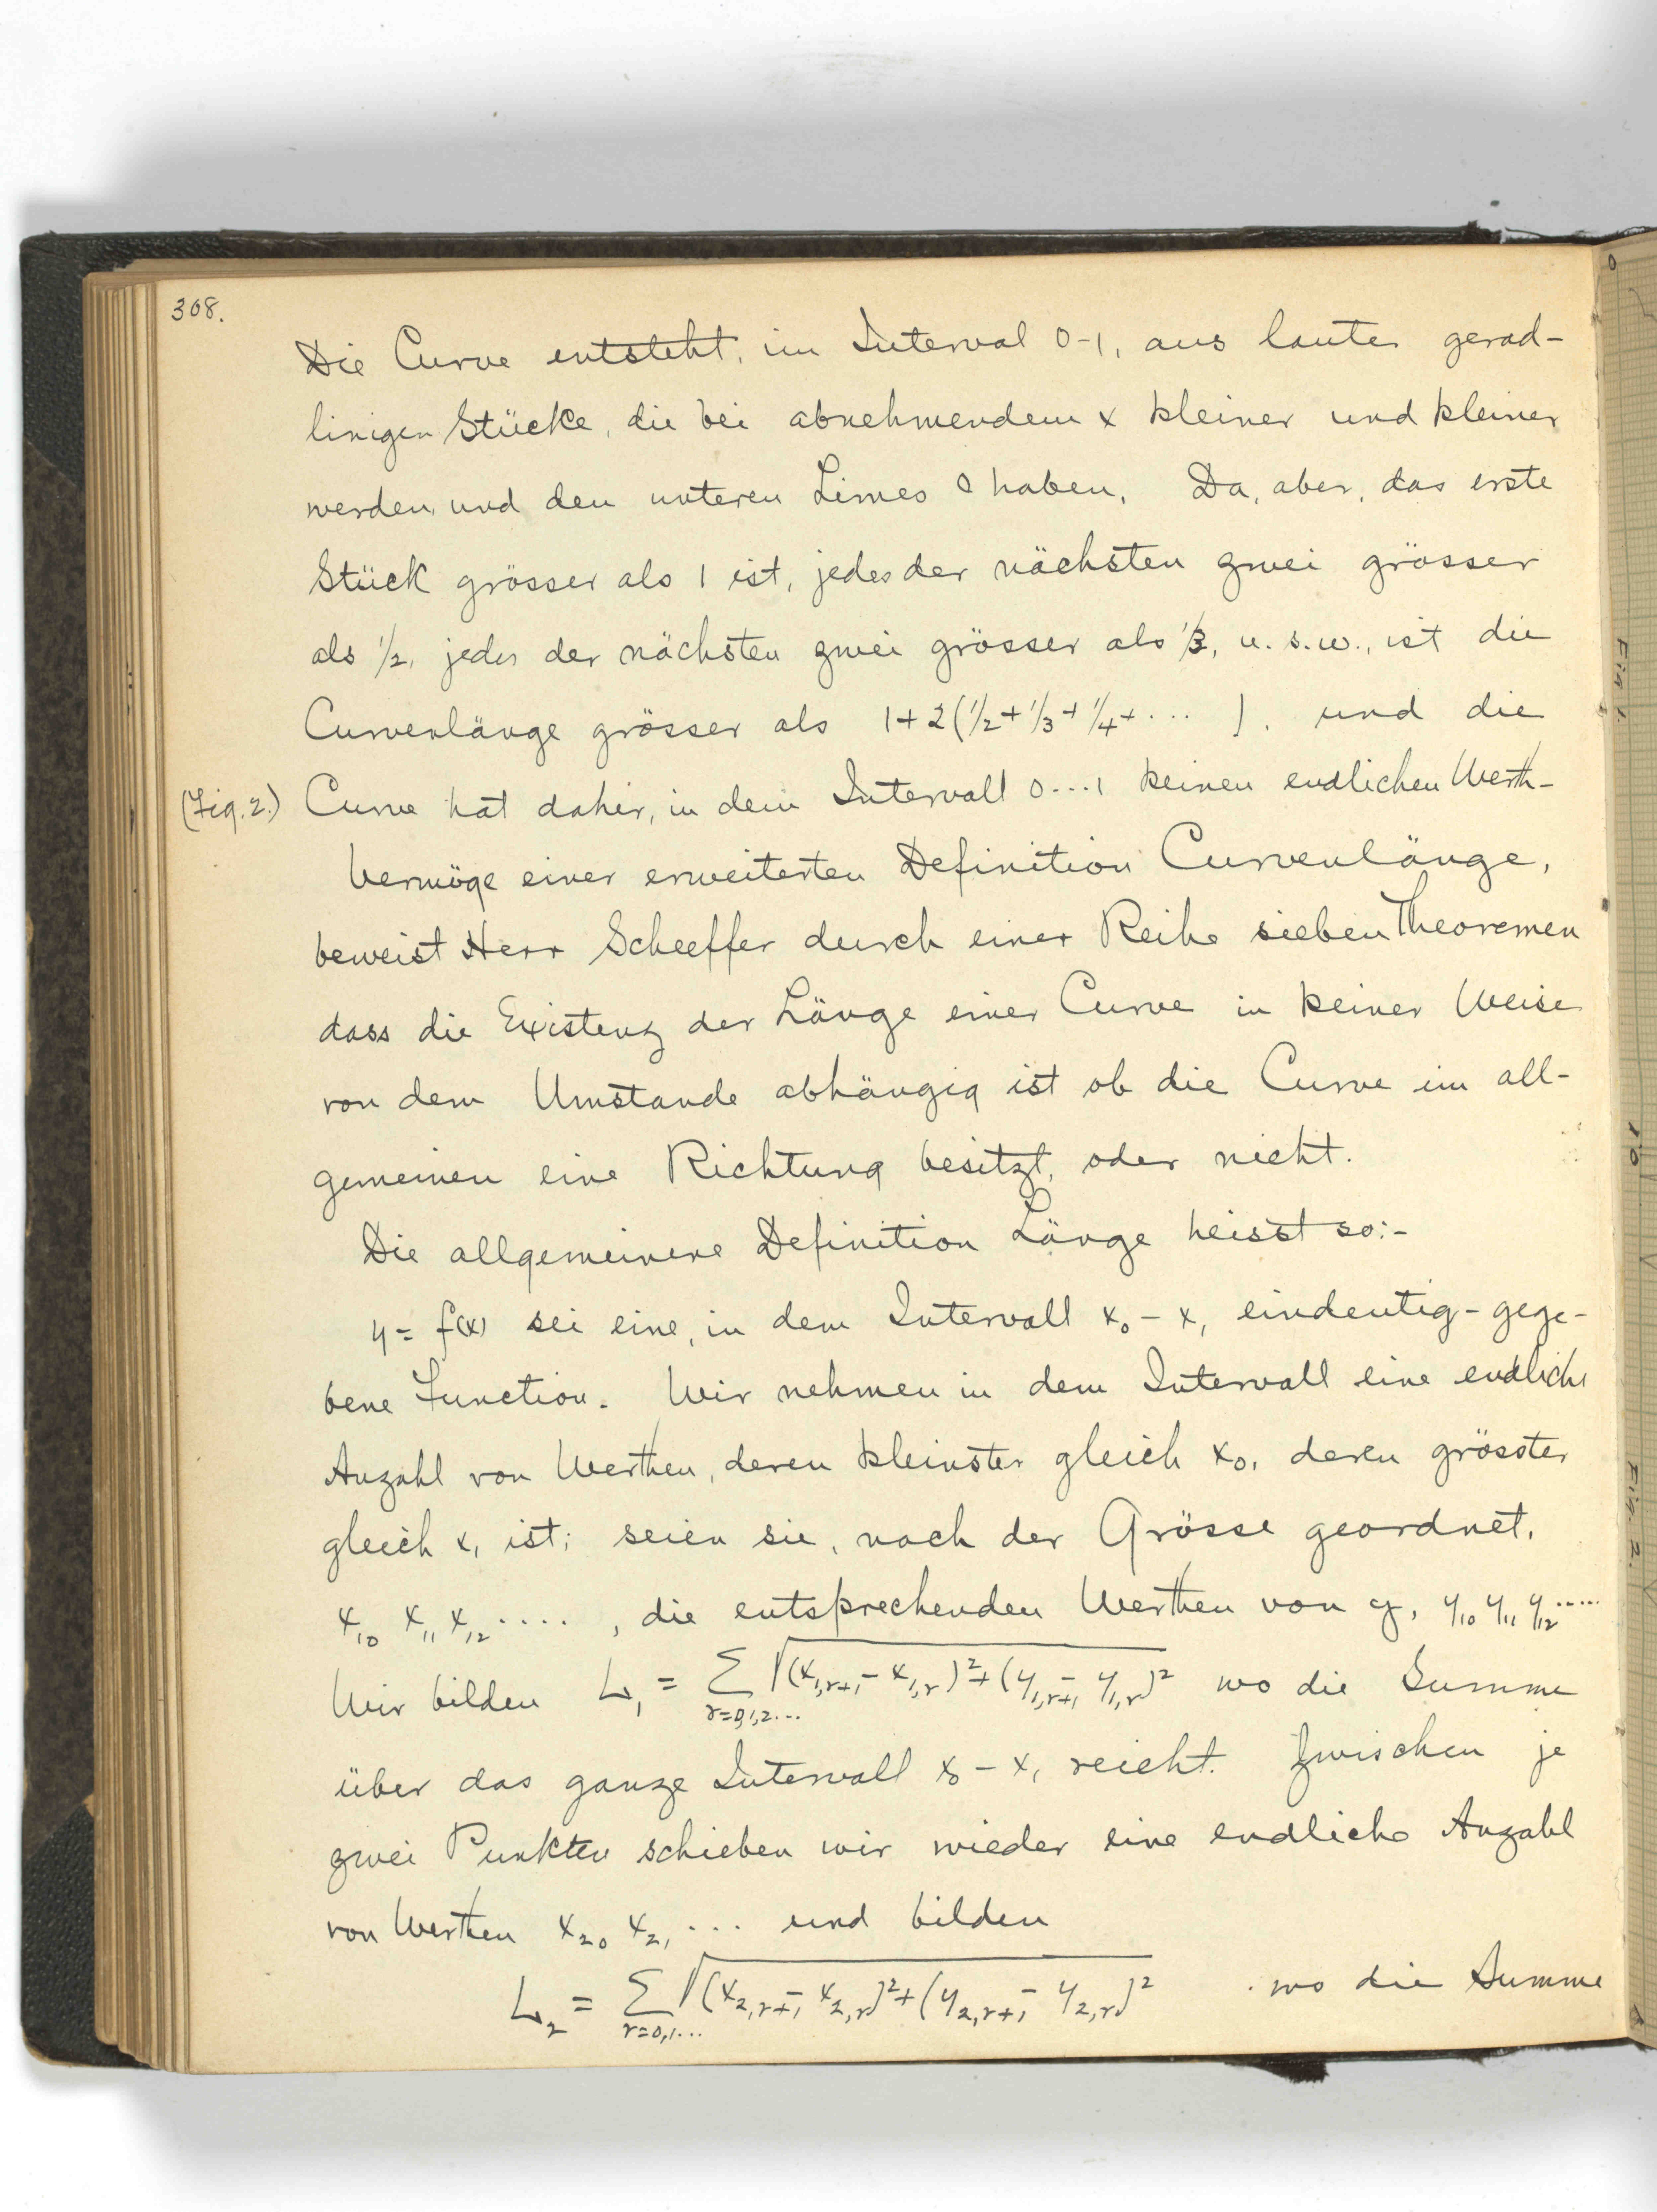 308.
Die Curve entsteht, im Interval 0-1, aus lauter gerad-
linigen Stücke, die bei abnehmendem x kleiner und kleiner
werden, und den unteren Limes 0 haben. Da, aber, das erste
Stück grösser als 1 ist, jedes der nächsten zwei grösser
als 1/2, jedes der nächsten zwei grösser als 1/3, u. s. w., ist die
Curvenlänge grösser als 1+2(1/2+1/3+1/4+... ). und die
(Fig. 2.) Curve hat daher, in dem Intervall 0...1 keinen endlichen Werth-
Vermöge einer erweiterten Definition Curvenlänge,
beweist Herr Scheeffer durch einer Reihe sieben Theoremen
dass die Existenz der Länge einer Curve in keiner Weise
von dem Umstande abhängig ist ob die Curve im all-
gemeinen eine Richtung besitzt, oder nicht.
Die allgemeinere Definition Länge heisst so:-
y = f(x) sei eine, in dem Intervall x₀ - x₁ eindeutig-gege-
bene Function. Wir nehmen in dem Intervall eine endliche
Anzahl von Werthen, deren kleinster gleich x₀, deren grösster
gleich x₁ ist; seien sie, nach der Grösse geordnet,
x₁₀ x₁₁ x₁₂ ...., die entsprechenden Werthen von y, y₁₀ y₁₁ y₁₂.....
Wir bilden L₁ = Σ_{r=0,1,2...} √(x_{1,r+1} - x_{1,r})² + (y_{1,r+1} - y_{1,r})² wo die Summe
über das ganze Intervall x₀ - x₁ reicht. Zwischen je
zwei Punkten schieben wir wieder eine endliche Anzahl
von Werthen x₂₀ x₂₁ ... und bilden
L₂ = Σ_{r=0,1...} √(x_{2,r+1} - x_{2,r})² + (y_{2,r+1} - y_{2,r})² wo die Summe
Fig 1.
Fig. 2.